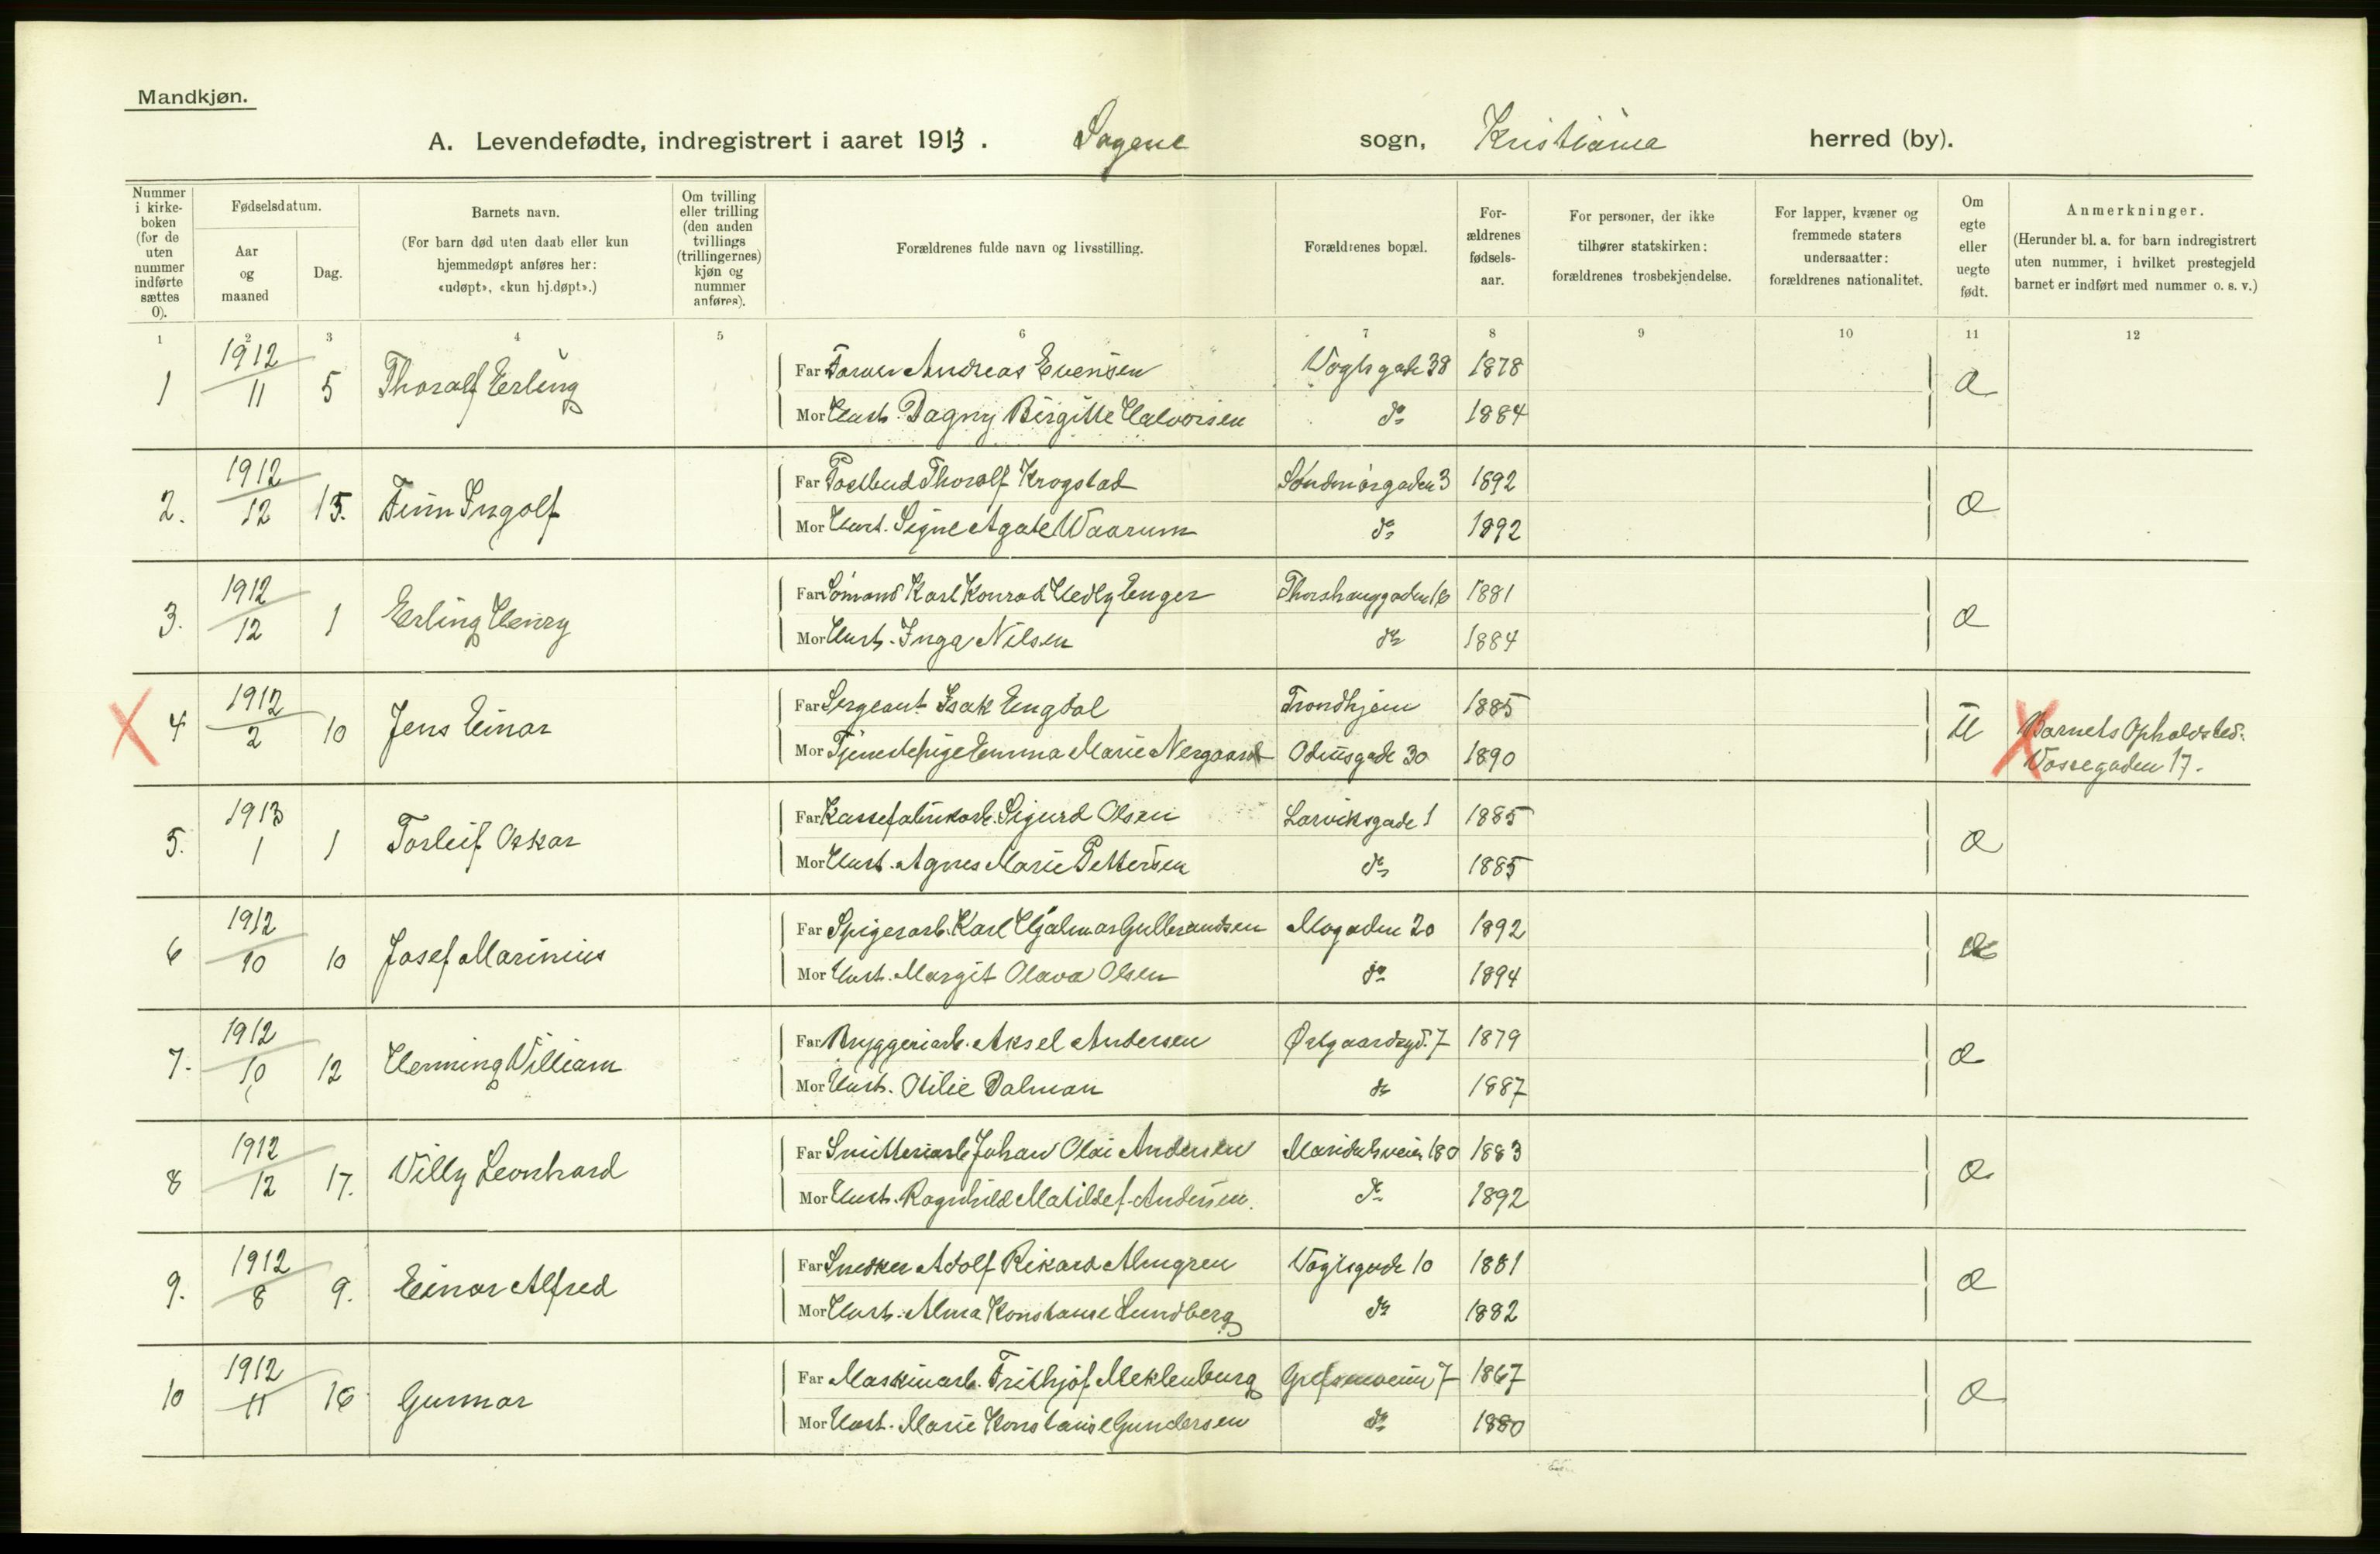 Mandkjøn.
A. Levendefødte, indregistrert i aaret 1913. Sagene sogn, Kristiania herred (by).
Nummer i kirke-boken (for de uten nummer indførte sættes 0).
Fødselsdatum.
Aar og maaned
Dag.
Barnets navn.
(For barn død uten daab eller kun hjemmedøpt anføres her: «udøpt», «kun hj.døpt».)
Om tvilling eller trilling (den anden tvillings (trillingernes) kjøn og nummer anføres).
Forældrenes fulde navn og livsstilling.
Forældrenes bopæl.
For-ældrenes fødsels-aar.
For personer, der ikke tilhører statskirken: forældrenes trosbekjendelse.
For lapper, kvæner og fremmede staters undersaatter: forældrenes nationalitet.
Om egte eller uegte født.
Anmerkninger.
(Herunder bl. a. for barn indregistrert uten nummer, i hvilket prestegjeld barnet er indført med nummer o. s. v.)
1 2 3 4 5 6 7 8 9 10 11 12
1 1912 11 5 Thoralf Erling
Far Andreas Evensen Vogtsgade 38 1878
Mor Hust. Dagny Birgitte Halvorsen do 1884
2. 1912 12 15. Finn Ingolf
Far Postbud Thoralf Krogstad Søndmørgaden 3 1892
Mor Hust. Signe Agate Waarum do 1892
3. 1912 12 1 Erling Henry
Far Sømand Karl Konrad Hedly Enger Thorshauggaden 16 1881
Mor Hust. Inga Nilsen do 1884
4 1912 2 10 Jens Einar
Far Sergeant Isak Engdal Trondhjem 1885 U
Mor Tjenestepige Emma Marie Nergaard Odinsgade 30 1890
Barnets Opholdsted:
Vossegaden 17.
5. 1913 1 1 Torleif Oskar
Far Kassefabrikarb. Sigurd Olsen Larviksgade 1 1885
Mor Hust. Agnes Marie Pettersen do 1885
6 1912 10 10 Josef Marinius
Far Spigerarb. Karl Hjalmar Gulbrandsen Mogaden 20 1892
Mor Hust. Margit Olava Olsen do 1894
7. 1912 10 12 Henning William
Far Bryggeriarb. Aksel Andersen Østgaardsgd. 7 1879
Mor Hust. Otilie Dalman do 1887
8 1912 12 17. Villy Leonhard
Far Johan Olai Andersen Maridalsveien 180 1883
Mor Hust. Ragnhild Matilde f. Andersen. do 1892
9. 1912 8 9. Einar Alfred
Far Snedker Adolf Rikard Almgren Vogtsgade 10 1881
Mor Hust. Alma Konstanse Lundberg do 1882
10 1912 11 16 Gunnar
Far Maskinarb. Frithjof Meklenburg Grefsenveien 7 1867
Mor Hust. Marie Konstanse Gundersen do 1880